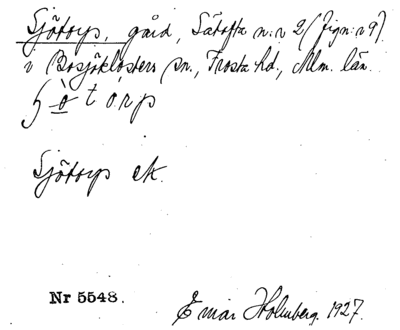 Sjötorp, gård, Sätofta n:o 2 (Jign: 29)
i Bosjöklosters sn., Frosta hd, Mlm. län.
ʃö̀tórp
Sjötorp ek.
Nr 5548.
Einar Holmberg. 1927.